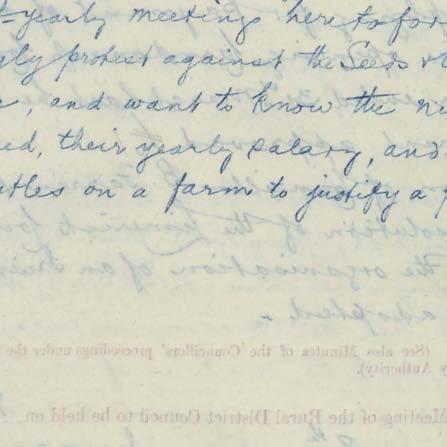 -yearly meeting heretofor
gly protest against the Seeds
, and want to know the
ed, their yearly salary, and
tles on a farm to justify a
solution of the
the organisation of an
adopted.
(See also Minutes of the Councillors' proceedings under the
y Authority).
Meeting of the Rural District Council to be held on